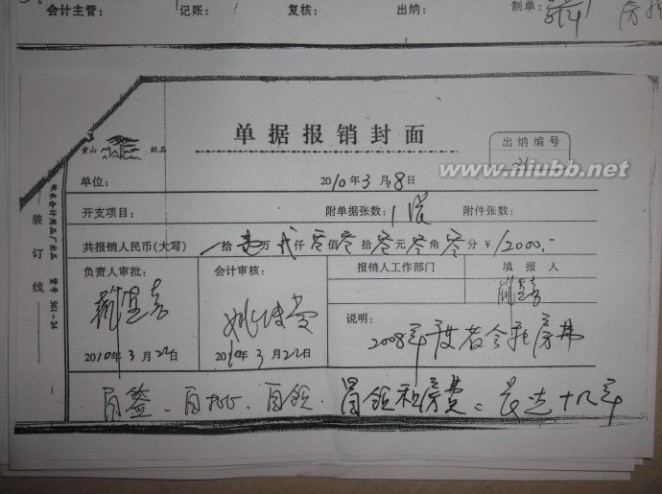 会计主管: 记账: 复核: 出纳: 制单:
单据报销封面
黄山 纸品
出纳编号
21
www.niubb.net
单位: 2010年3月8日
开支项目: 附单据张数: 1张 附件张数:
共报销人民币(大写) 拾壹万贰仟零佰零拾零元零角零分 ¥12000.-
负责人审批: 会计审核: 报销人工作部门 填报人
说明:
2008年度
房费
2010年3月22日 2010年3月22日
自签、自批、自领.冒领租房费:长达十几年
装订线